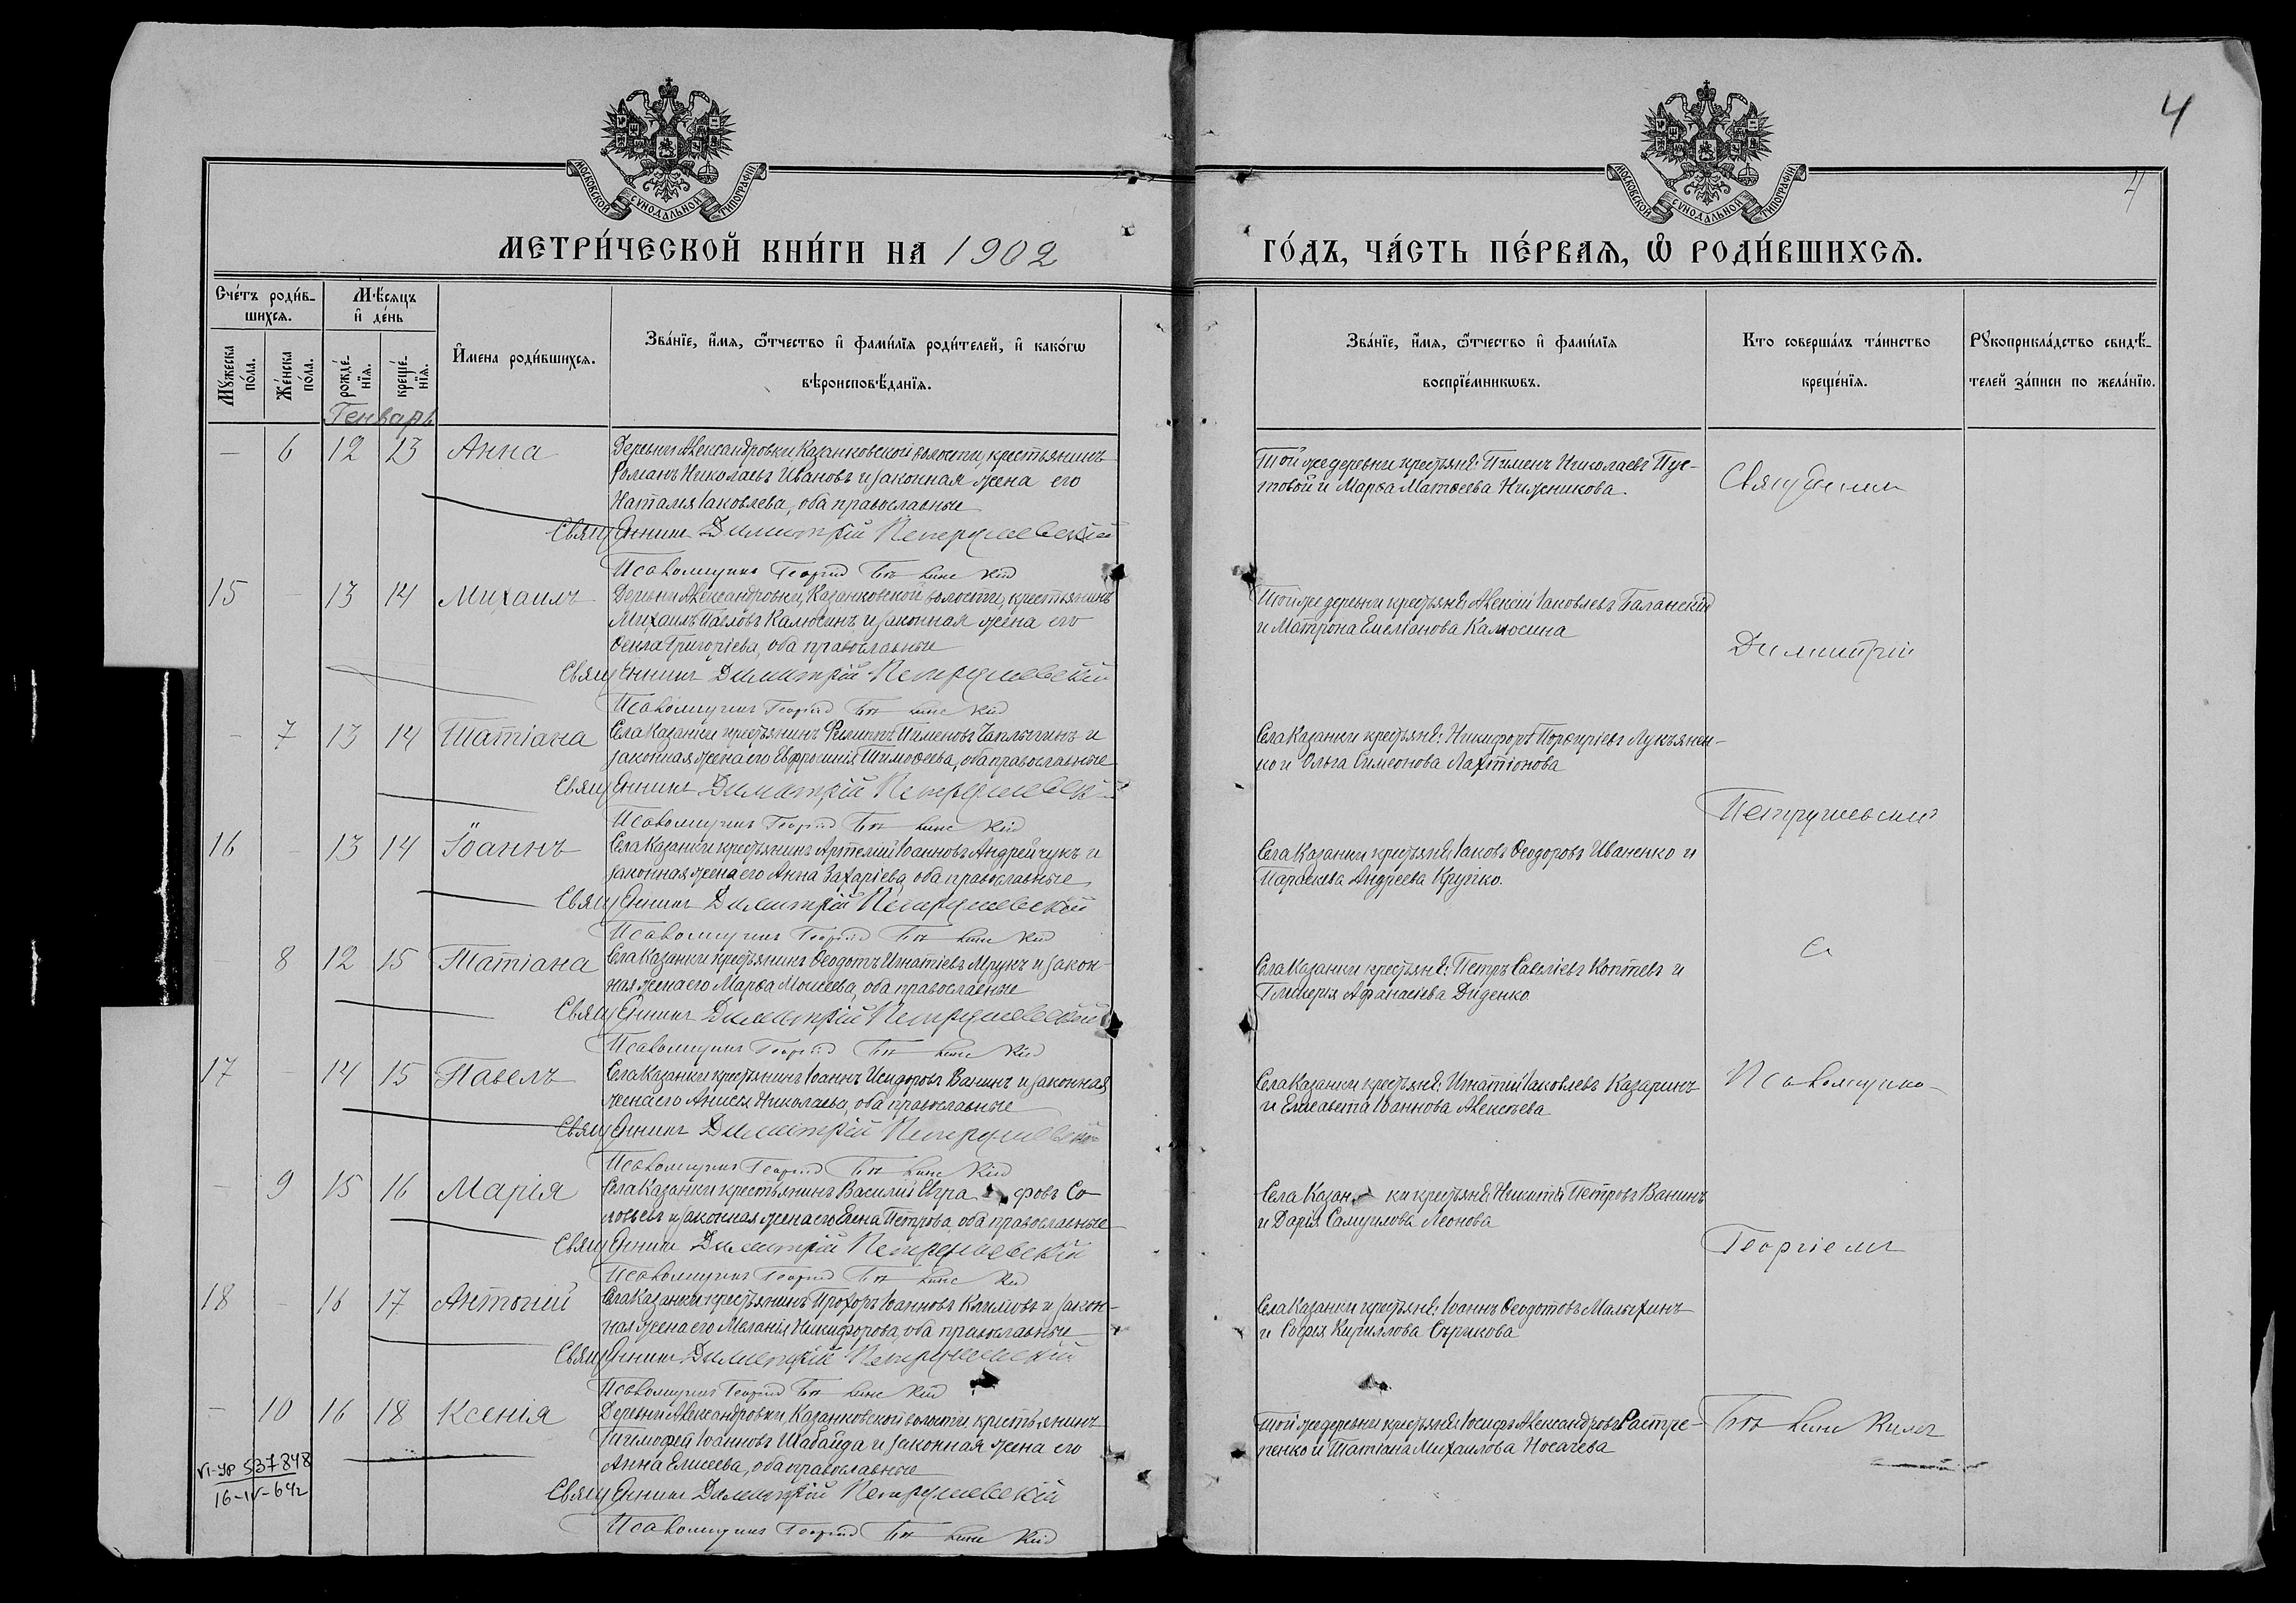 4
4
МОСКОВСКОЙ СѴНОДАЛЬНОЙ ТИПОГРАФІИ
МОСКОВСКОЙ СѴНОДАЛЬНОЙ ТИПОГРАФІИ
МЕТРИ́ЧЕСКОЙ КНИ́ГИ НА 1902
ГО́ДЪ, ЧА́СТЬ ПЕ́РВАѦ, Ѽ РОДИ́ВШИХСѦ.
Сче́тъ роди́в-
шихсѧ.
Мѣ́сяцъ
и҆ де́нь
Мꙋ́жеска
по́ла.
Же́нска
по́ла.
рожде́-
нїѧ.
креще́-
нїѧ.
И҆мена роди́вшихсѧ.
Зва́нїе, и҆́мѧ, ѻ҆́тчество и҆ фами́лїѧ роди́телей, и҆ како́гѡ
вѣроисповѣ́данїѧ.
Зва́нїе, и҆́мѧ, ѻ҆́тчество и҆ фами́лїѧ
воспрїе́мникѡвъ.
Кто соверша́лъ та́инство
креще́нїѧ.
Рꙋкоприкла́дство свидѣ́-
телей за́писи по жела́нїю.
Генварь
— 6 12 13 Анна
Деревни Александровки Казанковской волости, крестьянинъ
Романъ Николаевъ Ивановъ и законная жена его
Наталія Іаковлева, оба православные
Священникъ Димитрій Петрушевскій
Псаломщикъ Георгій
Той же деревни крестьяне: Пименъ Николаевъ Пус-
товой и Марѳа Матѳеева Ниженикова.
Священникъ
15 — 13 14 Михаилъ
Деревни Александровки, Казанковской волости, крестьянинъ
Михаилъ Павловъ Калюсинъ и законная жена его
Ѳекла Григоріева, оба православные
Священникъ Димитрій Петрушевскій
Псаломщикъ Георгій
Той же деревни крестьяне: Алексій Іаковлевъ Баганскій
и Матрона Емеліанова Калюсина
Димитрій
— 7 13 14 Татіана
Села Казанки крестьянинъ Филиппъ Пименовъ Чаплыгинъ и
законная жена его Евфросинія Тимоѳеева, оба православные
Священникъ Димитрій Петрушевскій
Псаломщикъ Георгій
Села Казанки крестьяне: Никифоръ Порфиріевъ Лукьянен-
ко и Ольга Симеонова Лахтіонова
Петрушевскій
16 — 13 14 Іоаннъ
Села Казанки крестьянинъ Артемій Іоанновъ Андрейчукъ и
законная жена его Анна Захаріева, оба православные
Священникъ Димитрій Петрушевскій
Псаломщикъ Георгій
Села Казанки крестьяне: Іаковъ Ѳеодоровъ Иваненко и
Параскева Андреева Крупко.
— 8 12 15 Татіана
Села Казанки крестьянинъ Ѳеодотъ Игнатіевъ Мрукъ и закон-
ная жена его Марѳа Моисеева, оба православные
Священникъ Димитрій Петрушевскій
Псаломщикъ Георгій
Села Казанки крестьяне: Петръ Савеліевъ Коптевъ и
Гликерія Афанасіева Диденко
съ
17 — 14 15 Павелъ
Села Казанки крестьянинъ Іоаннъ Исидоровъ Ванинъ и законная
жена его Анисія Николаева, оба православные
Священникъ Димитрій Петрушевскій
Псаломщикъ Георгій
Села Казанки крестьяне: Игнатій Іаковлевъ Казаринъ
и Елисавета Іоаннова Алексеева
Псаломщико-
— 9 15 16 Марія
Села Казанки крестьянинъ Василій Евграфовъ Со-
ловьевъ и законная жена его Елена Петрова оба православные
Священникъ Димитрій Петрушевскій
Псаломщикъ Георгій
Села Казанки крестьяне: Никита Петровъ Ванинъ
и Дарія Самуилова Леонова
Георгіемъ
18 — 16 17 Антоній
Села Казанки крестьянинъ Прохоръ Іоанновъ Климовъ и закон-
ная жена его Меланія Никифорова, оба православные
Священникъ Димитрій Петрушевскій
Псаломщикъ Георгій
Села Казанки крестьяне: Іоаннъ Ѳеодотовъ Малыхинъ
и Софія Кириллова Сърикова
— 10 16 18 Ксенія
Деревни Александровки, Казанковской волости крестьянинъ
Тимофей Іоанновъ Шабайда и законная жена его
Анна Елисеева, оба православные
Священникъ Димитрій Петрушевскій
Псаломщикъ Георгій
Той же деревни крестьяне: Іосифъ Александровъ Растре-
пенко и Татіана Михаилова Носачева
VI-УР 537848
16-IV-64г